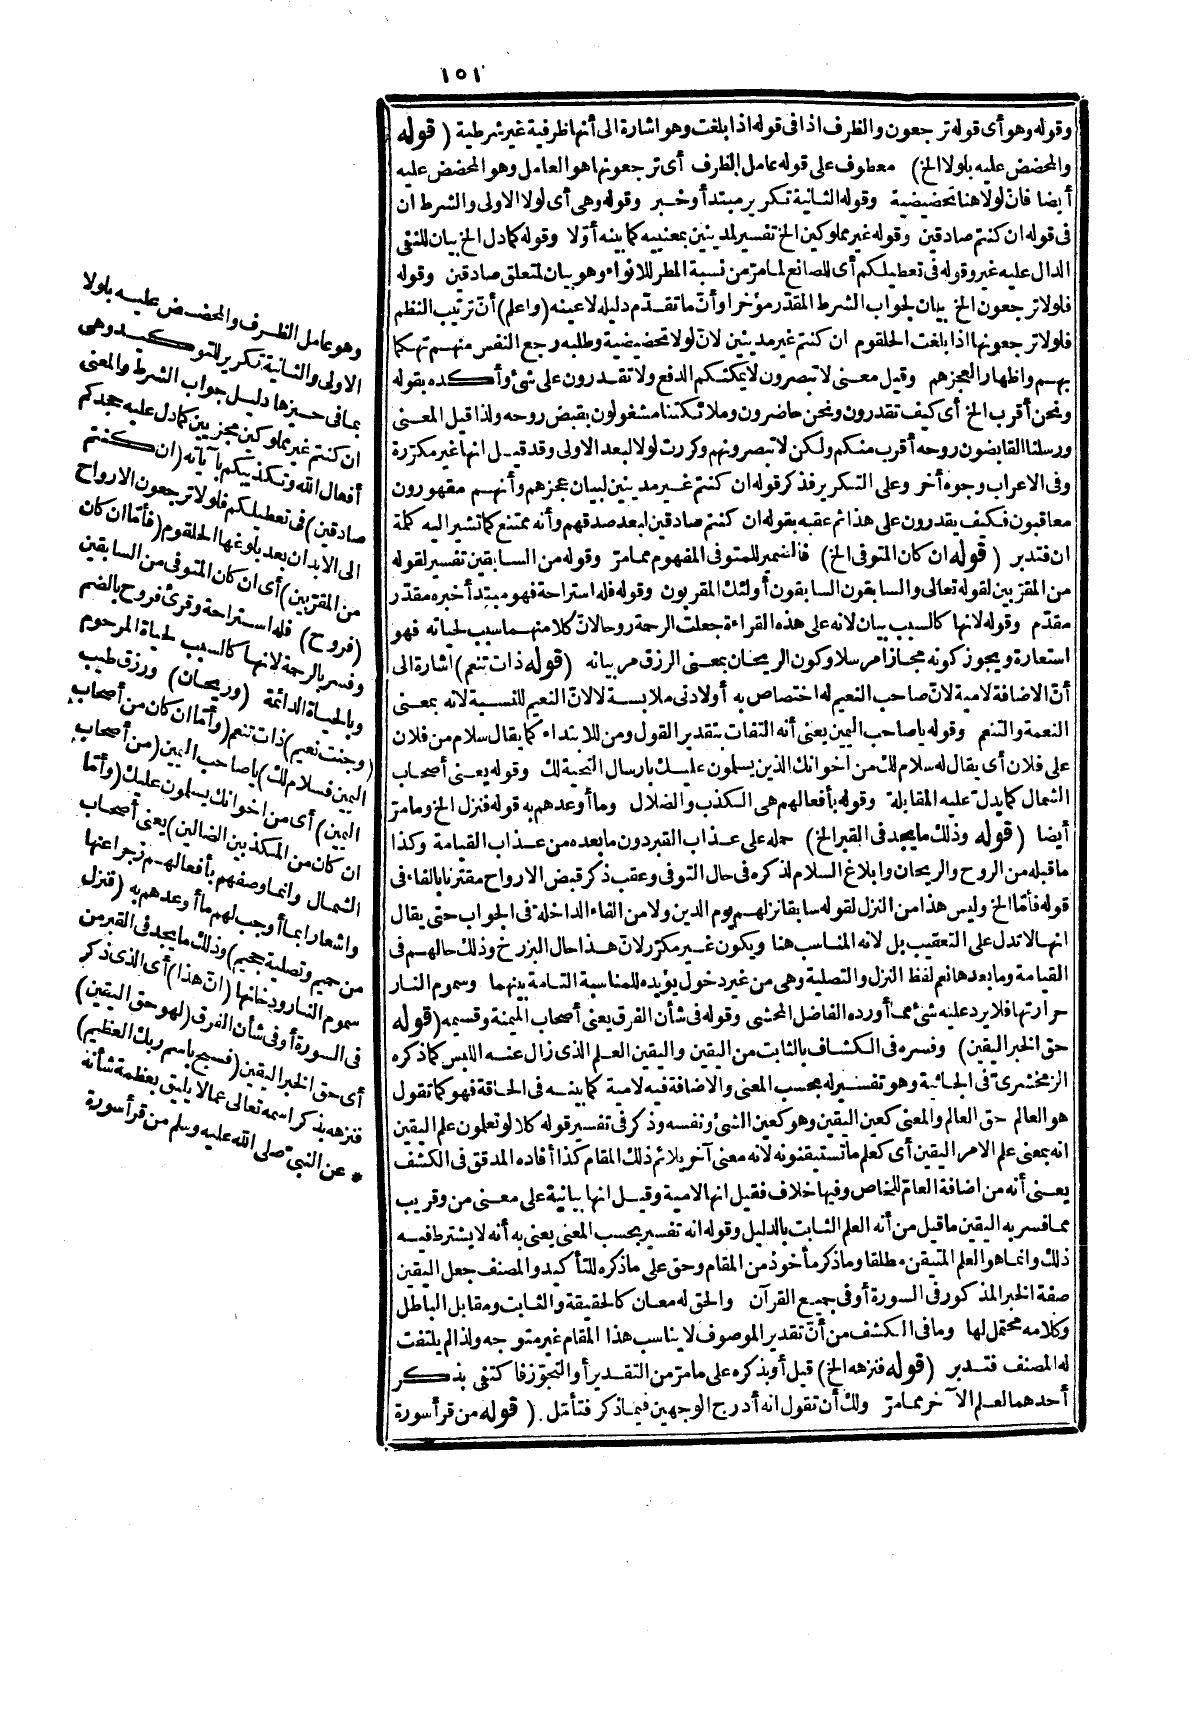 ١٥١
وقوله وهو أى قوله ترجعون والظرف اذا فى قوله اذا بلغت وهو اشارة الى أنها ظرفية غير شرطية (قوله
والمحضض عليه بلولا الخ) معطوف على قوله عامل الظرف أى ترجعونها هو العامل وهو المحضض عليه
أيضا فانّ لولا هنا تحضيضية وقوله الثانية تكرير مبتدأ وخبر وقوله وهى أى لولا الاولى والشرط ان
فى قوله ان كنتم صادقين وقوله غير مملوكين الخ تفسير لمدينين بمعنييه كما بينه أوّلا وقوله كما دل الخ بيان للنفى
الدال عليه غير وقوله فى تعطيلكم أى للصانع لما مرّ من نسبة المطر للانواء وهو بيان لمتعلق صادقين وقوله
فلولا ترجعون الخ بيان لجواب الشرط المقدّر مؤخرا وأنّ ما تقدّم دليله لا عينه (واعلم) أنّ ترتيب النظم
فلولا ترجعونها اذا بلغت الحلقوم ان كنتم غير مدينين لانّ لولا تحضيضية وطلبه رجع النفس منهم تهكما
بهم واظهار العجزهم وقيل معنى لا تبصرون لا يمكنكم الدفع ولا تقدرون على شئ وأكده بقوله
ونحن أقرب الخ أى كيف تقدرون ونحن حاضرون وملائكتنا مشغولون بقبض روحه ولذا قيل المعنى
ورسلنا القابضون روحه أقرب منكم ولكن لا تبصرونهم وكررت لولا لبعد الاولى وقد قيل انها غير مكرّرة
وفى الاعراب وجوه أخر وعلى التكرير فذكر قوله ان كنتم غير مدينين لبيان عجزهم وأنهم مقهورون
معاقبون فكيف يقدرون على هذا ثم عقبه بقوله ان كنتم صادقين لبعد صدقهم وأنه ممتنع كما تشير اليه كلة
ان فتدبر (قوله ان كان المتوفى الخ) فالضمير للمتوفى المفهوم مما مرّ وقوله من السابقين تفسير لقوله
من المقرّبين لقوله تعالى والسابقون السابقون أولئك المقربون وقوله فله استراحة فهو مبتدأ خبره مقدّر
مقدّم وقوله لانها كالسبب بيان لانه على هذه القراءة جعلت الرحمة روحا لانّ كلا منهما سبب لحياته فهو
استعارة ويجوز كونه مجازا مرسلا وكون الريحان بمعنى الرزق مر بيانه (قوله ذات تنعم) اشارة الى
أنّ الاضافة لامية لانّ صاحب النعيم له اختصاص به أو لادنى ملابسة لا لانّ النعيم للنسبة لانه بمعنى
النعمة والتنعم وقوله يا صاحب اليمين يعنى أنه التفات بتقدير القول ومن للابتداء كما يقال سلام من فلان
على فلان أى يقال له سلام لك من اخوانك الذين يسلمون عليك بارسال التحية لك وقوله يعنى أصحاب
الشمال كما يدل عليه المقابلة وقوله بأفعالهم هى الكذب والضلال وما أوعدهم به قوله فنزل الخ وما مرّ
أيضا (قوله وذلك ما يجد فى القبر الخ) حمله على عذاب القبر دون ما بعده من عذاب القيامة وكذا
ما قبله من الروح والريحان وابلاغ السلام لذكره فى حال التوفى وعقب ذكر قبض الارواح مقترنا بالفاء فى
قوله فأمّا الخ وليس هذا من النزل لقوله سابقا نزلهم يوم الدين ولا من الفاء الداخلة فى الجواب حتى يقال
انها لا تدل على التعقيب بل لانه المناسب هنا ويكون غير مكرّر لانّ هذا حال البرزخ وذلك حالهم فى
القيامة وما بعدها نعم لفظ النزل والتصلية وهى من غير دخول يؤيده للمناسبة التامة بينهما وسموم النار
حرارتها فلا يرد عليه شئ مما أورده الفاضل المحشى وقوله فى شأن الفرق يعنى أصحاب الميمنة وقسيمه (قوله
حق الخبر اليقين) وفسره فى الكشاف بالثابت من اليقين واليقين العلم الذى زال عنه اللبس كما ذكره
الزمخشرىّ فى الجاثية وهو تفسير له بحسب المعنى والاضافة فيه لامية كما بينه فى الحاقة فهو كما تقول
هو العالم حق العالم والمعنى كعين اليقين وهو كعين الشئ ونفسه وذكر فى تفسير قوله كلا لو تعلمون علم اليقين
انه بمعنى علم الامر اليقين أى كعلم ما تستيقنونه لانه معنى آخر يلائم ذلك المقام كذا أفاده المدقق فى الكشف
يعنى أنه من اضافة العام للخاص وفيها خلاف فقيل انها لامية وقيل انها بيانية على معنى من وقريب
مما فسر به اليقين ما قيل من أنه العلم الثابت بالدليل وقوله انه تفسير بحسب المعنى يعنى به أنه لا يشترط فيه
ذلك وانما هو العلم المتيقن مطلقا وما ذكر مأخوذ من المقام وحق على ما ذكره للتأكيد والمصنف جعل اليقين
صفة الخبر المذكور فى السورة أو فى جميع القرآن والحق له معان كالحقيقة والثابت ومقابل الباطل
وكلامه محتمل لها وما فى الكشف من أنّ تقدير الموصوف لا يناسب هذا المقام غير متوجه ولذا لم يلتفت
له المصنف فتدبر (قوله فنزهه الخ) قيل أو بذكره على ما مرّ من التقدير أو التجوّز فاكتفى بذكر
أحدهما لعلم الآخر مما مرّ ولك أن تقول انه أدرج الوجهين فيما ذكر فتأمّل. (قوله من قرأ سورة
وهو عامل الظرف والمحضض عليه بلولا
الاولى والثانية تكرير للتوكيد وهى
بما فى حيزها دليل جواب الشرط والمعنى
ان كنتم غير مملوكين مجزيين كما دل عليه جحدكم
أفعال الله وتكذيبكم بآياته (ان كنتم
صادقين) فى تعطيلكم فلولا ترجعون الارواح
الى الابدان بعد بلوغها الحلقوم (فأمّا ان كان
من المقرّبين) أى ان كان المتوفى من السابقين
(فروح) فله استراحة وقرئ فروح بالضم
وفسر بالرحمة لانها كالسبب لحياة المرحوم
وبالحياة الدائمة (وريحان) ورزق طيب
(وجنت نعيم) ذات تنعم (وأمّا ان كان من أصحاب
اليمين فسلام لك) يا صاحب اليمين (من أصحاب
اليمين) أى من اخوانك يسلمون عليك (وأمّا
ان كان من المكذبين الضالين) يعنى أصحاب
الشمال وانما وصفهم بأفعالهم زجرا عنها
واشعارا بما أوجب لهم ما أوعدهم به (فنزل
من حميم وتصلية جحيم) وذلك ما يجد فى القبر من
سموم النار ودخانها (انّ هذا) أى الذى ذكر
فى السورة أو فى شأن الفرق (لهو حق اليقين)
أى حق الخبر اليقين (فسبح باسم ربك العظيم)
فنزهه بذكر اسمه تعالى عما لا يليق بعظمة شأنه
* عن النبىّ صلى الله عليه وسلم من قرأ سورة